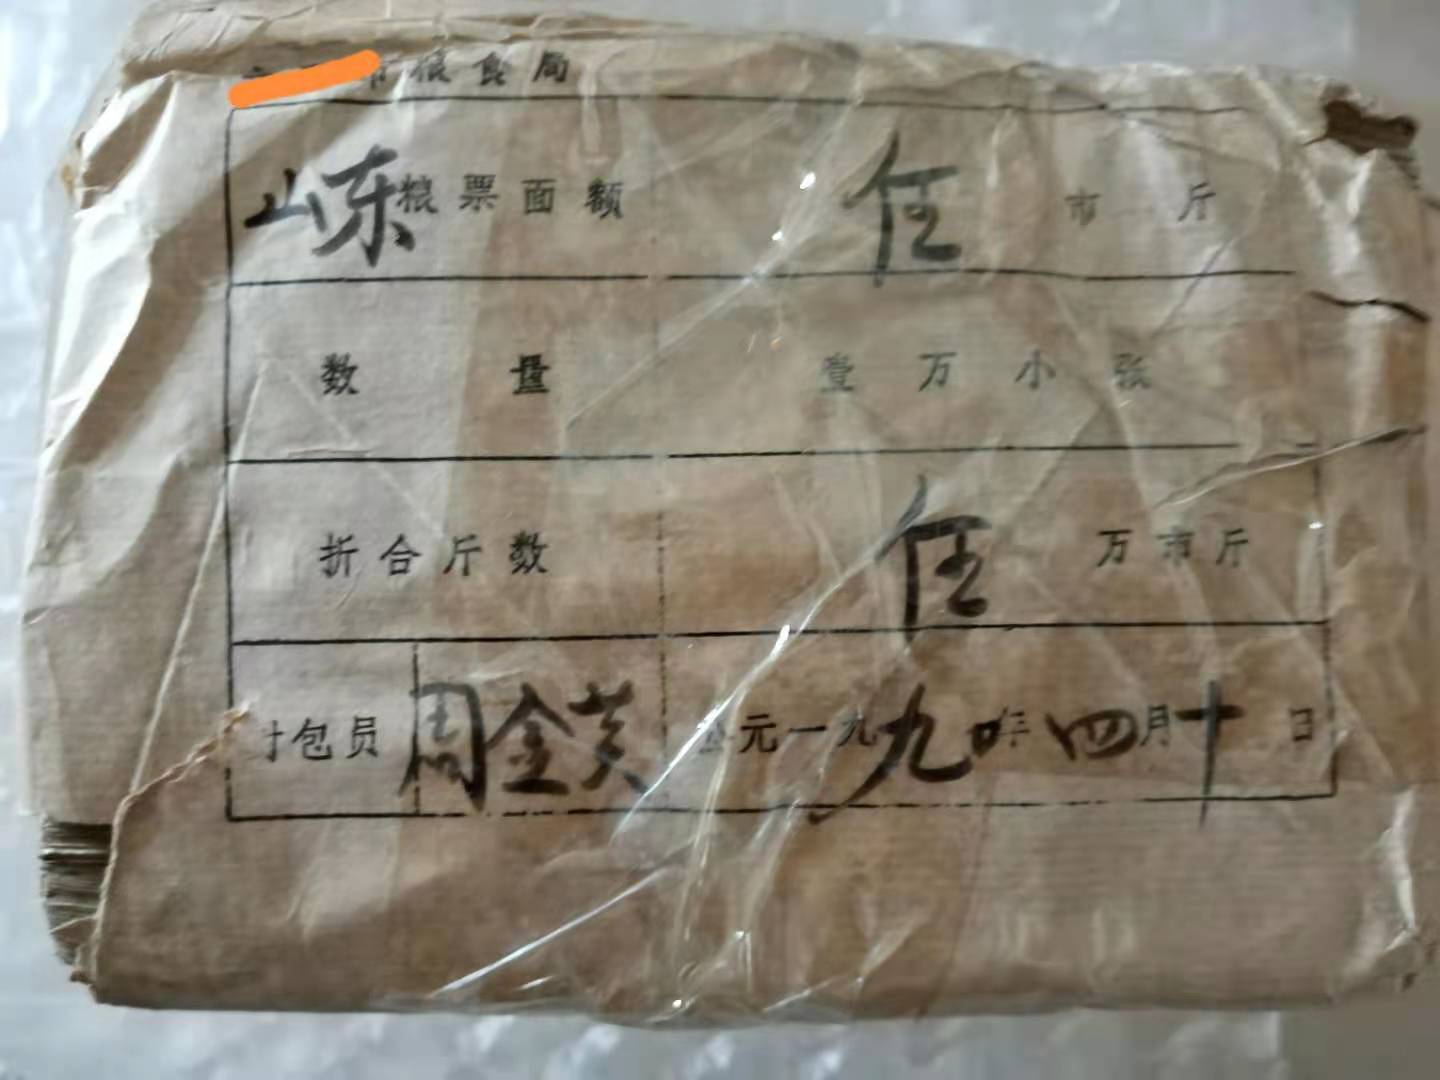 市粮食局
山东粮票面额 伍 市斤
数量 壹万小张
折合斤数 伍 万市斤
封包员 周金芙 公元一九九〇年四月十日